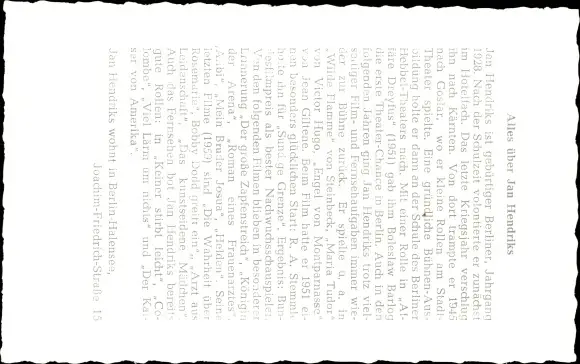 Alles über Jan Hendriks
Jan Hendriks ist gebürtiger Berliner, Jahrgang
1928. Nach der Schulzeit volontierte er zunächst
im Hotelfach. Das letzte Kriegsjahr verschlug
ihn nach Kärnten. Von dort trampte er 1945
nach Goslar, wo er kleine Rollen am Stadt-
Theater spielte. Eine gründliche Bühnen-Aus-
bildung holte er dann an der Schule des Berliner
Hebbel-Theaters nach. Mit einer Rolle in „Af-
färe Dreyfus" (1951) gab ihm Boleslaw Barlog
die erste große Chance in Berlin. Auch in den
folgenden Jahren ging Jan Hendriks trotz viel-
seitiger Film- und Fernsehaufgaben immer wie-
der zur Bühne zurück. Er spielte u. a. in
„Wilde Flamme" von Steinbeck, „Maria Tudor"
von Victor Hugo, „Engel von Montparnasse"
von Jean Gittene. Beim Film hatte er 1951 ei-
nen besonders glücklichen Start: R. A. Stemmle
holte ihn für „Sündige Grenze". Ergebnis: Bun-
desfilmpreis als bester Nachwuchsschauspieler.
Von den folgenden Filmen blieben in besonderer
Erinnerung „Der große Zapfenstreich", „Königin
der Arena", „Roman eines Frauenarztes",
„Alibi", „Mein Bruder Josua", „Helden". Seine
letzten Filme (1959) sind „Die Wahrheit über
Rosemarie", „Bobby Dodd greift ein", „Arzt aus
Leidenschaft", „Das kunstseidene Mädchen".
Auch das Fernsehen bot Jan Hendriks bereits
gute Rollen: in „Keiner stirbt leicht", „Co-
lombe", „Viel Lärm um nichts" und „Der Kai-
ser von Amerika".
Jan Hendriks wohnt in Berlin-Halensee,
Joachim-Friedrich-Straße 15